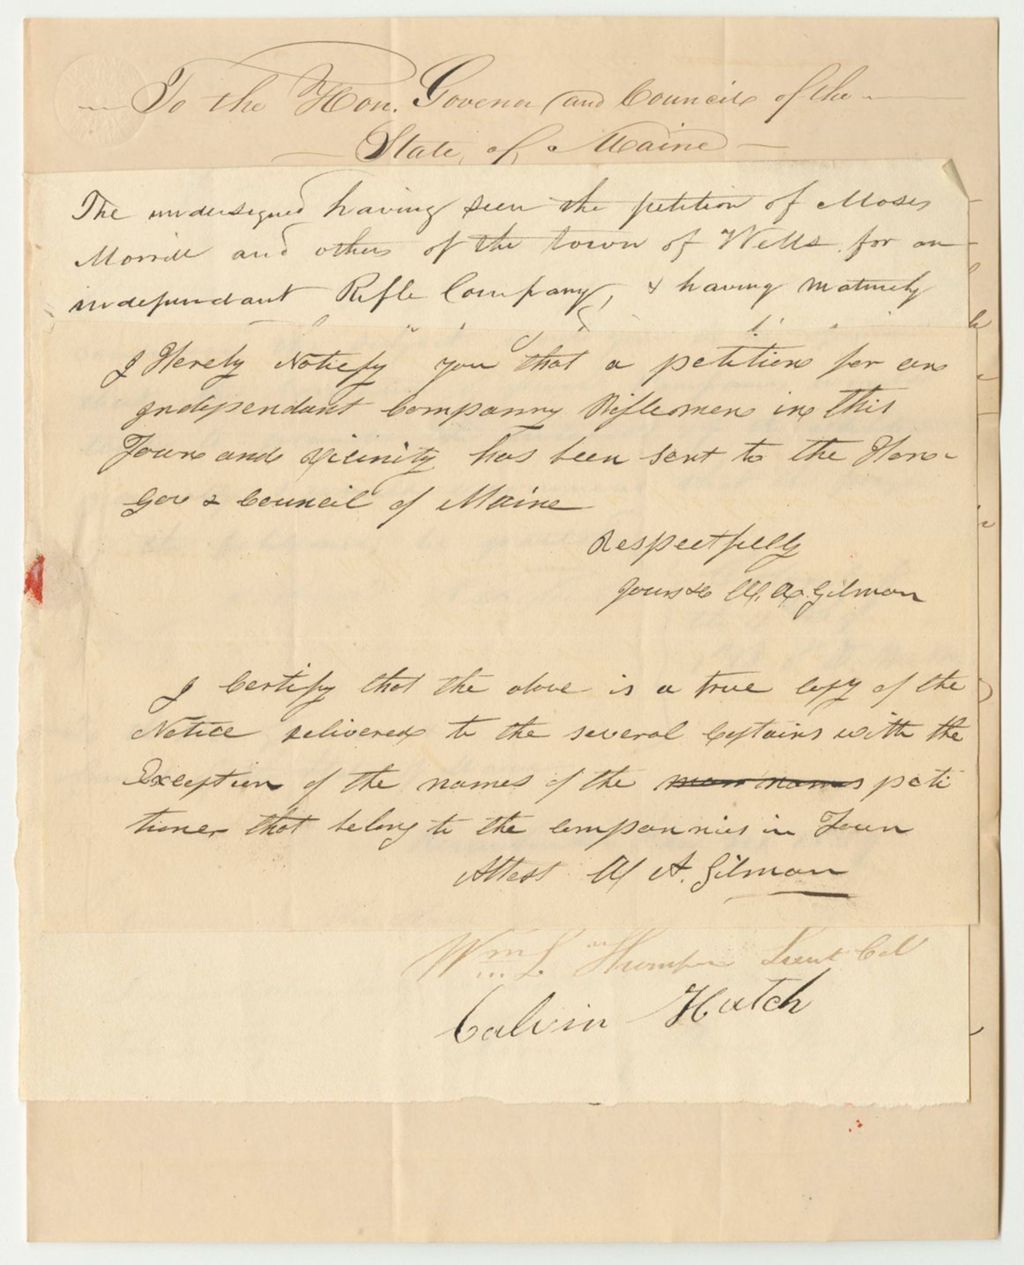 To the Hon. Govener and Councile of the
State, of, Maine
The undersigned having seen the petition of Moses
Morrill and others of the town of Wells for an
independant Rifle Company, & having maturely
I Hereby Notiefy you that a petition for an
Independant Companny Riflemen in this
Town and vicinity has been sent to the Hon.
Gov & Council of Maine
Respectfully
Yours &c A. Gilman
I Certify that the above is a true copy of the
Notice delivered to the several Captains with the
Exception of the names of the peti
tioner that belong to the compannies in Town
Attest A. Gilman
Wm L. Lieut Col
Calvin Hatch